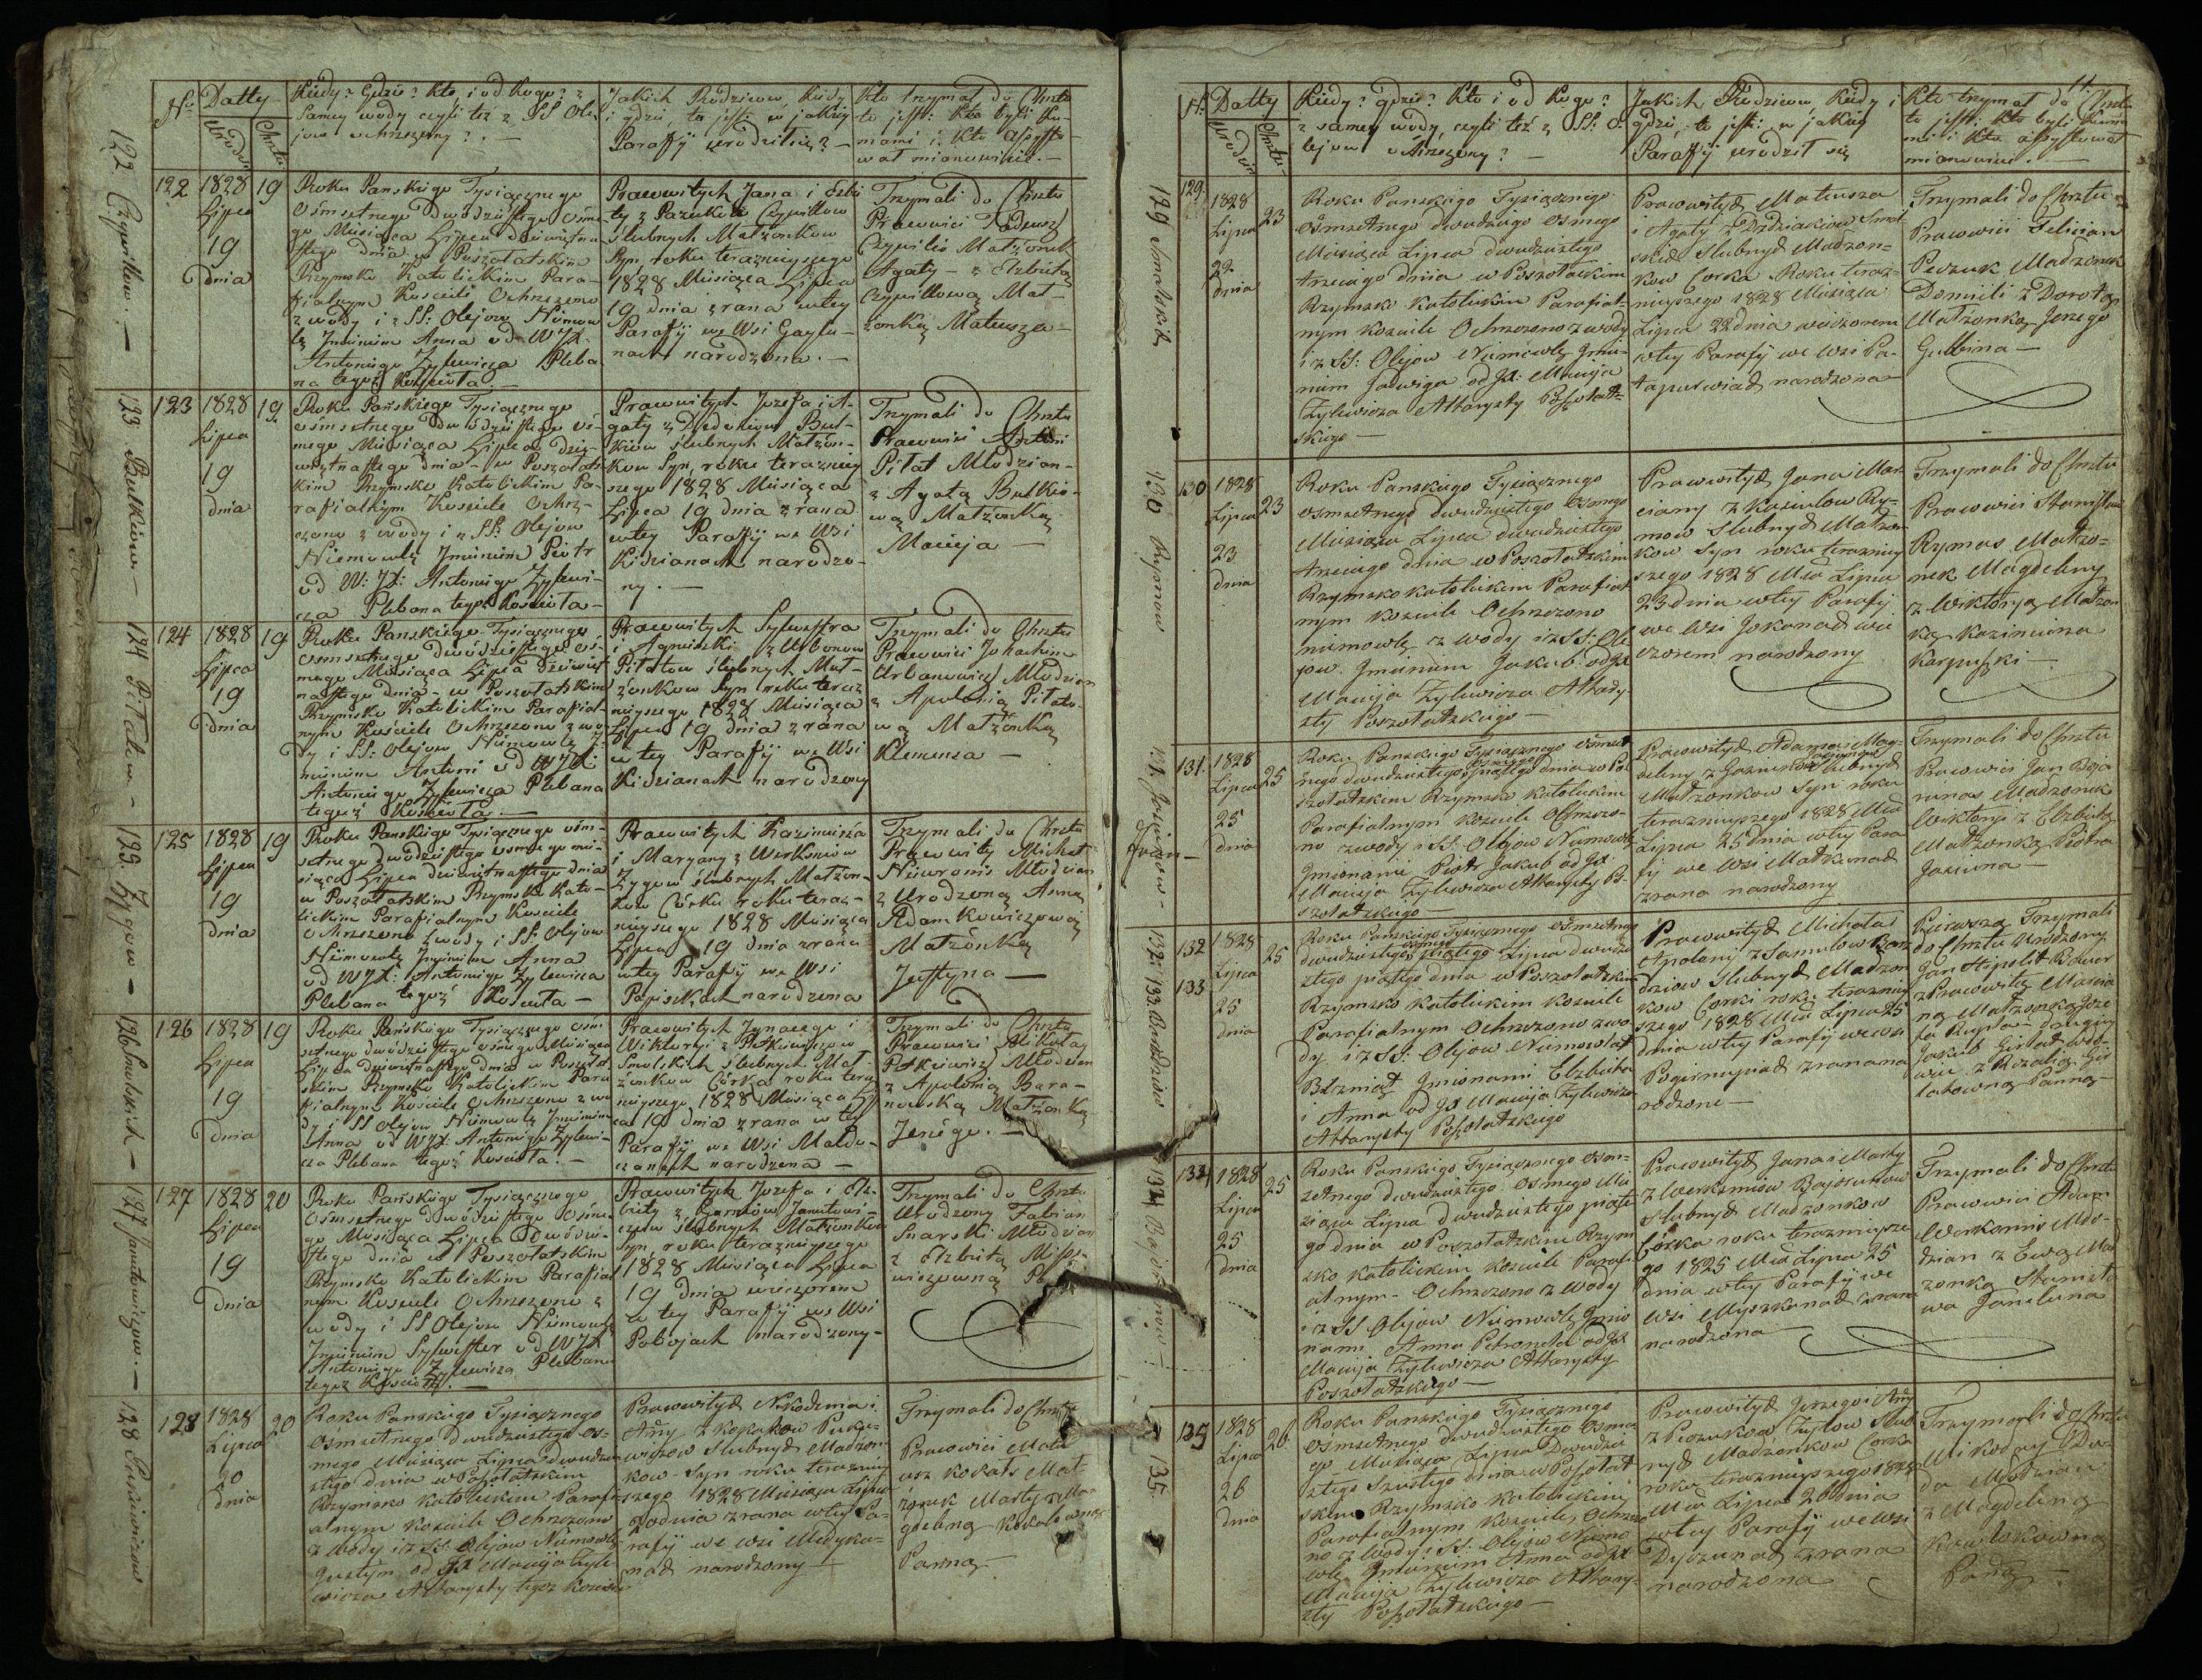 Nr
Datty
Urodin
Chrztu
Kiedy? Gdzie? Kto i od Kogo? z
Samey wody czyli też z SS Ole-
jow ochrzczony? —
Jakich Rodziców, kiedy
i gdzie, to jest: w jakiey
Paraffij urodziłsię? —
Kto trzymał do Chrztu
to jest: kto byli Ku-
mami i kto assysto-
wał mianowicie. —
122
1828
Lipca
19
dnia
19
Roku Panskiego Tysiącznego
Osmsetnego Dwódziestego Osme-
go Miesiąca Lipca dziewiętna-
stego dnia w Poszołatskim
Rzymsko Katolickim Para-
fialnym Kosciele Ochrzczono
z wody i z SS: Olejow Niemow-
lę Imieniem Anna od WJX:
Antoniego Zylewicza Pleba-
na tegoż Kościoła. —
Prawowitych Jana i Elżbie-
ty z Czywilow
ślubnych Małżonkow
Syn, roku teraznieyszego
1828 Miesiąca Lipca
19 dnia zrana wtey
Parafij we Wsi
narodzona. —
Trzymali do Chrztu
Pracowici Tadeusz
Czywilis Małżonek
Agaty — z Elzbietą
Czywillową Mał-
żonką Mateusza —
123
1828
Lipca
19
dnia
19
Roku Pańskiego Tysiącznego
osmsetnego Dwódziestego os-
mego Miesiąca Lipca dzie-
więtnastego dnia — w Poszołats-
kim Rzymsko Katolickim Pa-
rafialnym Kosciele Ochrz-
czono z wody i z SS: Olejow
Niemowlę Imieniem Piotr
od W: JX: Antoniego Zylewi-
cza Plebana tegoż Kościoła —
Prawowitych Jozefa i A-
gaty z Dedelow But-
kiow ślubnych Małżon-
kow Syn, roku terazniey-
szego 1828 Miesiąca
Lipca 19 dnia zrana
wtey Paraffij we Wsi
Kidzianach narodzo-
ny. —
Trzymali do Chrztu
Pracowici Antoni
Piłat Młodzian —
z Agatą Butkio-
wą Małżonką
Macieja —
124
1828
Lipca
19
dnia
19
Roku Panskiego Tysiącznego
osmsetnego dwódziestego os-
mego Miesiąca Lipca Dziewięt-
nastego dnia — w Poszołatskim
Rzymsko Katolickim Parafial-
nym Kościele Ochrzczono z wo-
dy i SS: Olejow Niemowlę I-
mieniem Antoni od WJX:
Antoniego Zylewicza Plebana
tegoż Kościoła —
Prawowitych Sylwestra
i Agnieszki z Urbonow
Piłatow ślubnych Mał-
żonkow Syn roku teraz-
nieyszego 1828 Miesiąca
Lipca 19 dnia zrana
w tey Parafij we Wsi
Kidzianach narodzony
Trzymali do Chrztu
Pracowici Johachim
Urbanowicz Młodzian
z Apolonią Piłato-
wą Małżonką
Klemensa —
125
1828
Lipca
19
dnia
19
Roku Panskiego Tysiącznego osm-
setnego dwódziestego osmego mie-
siąca Lipca dziewiętnastego dnia
w Poszołatskim Rzymsko Kato-
lickim Parafialnym Kosciele
Ochrzczono z wody i SS: Olejow
Niemowlę Imieniem Anna
od WJX: Antoniego Zylewicza
Plebana tegoż Kościoła —
Prawowitych Kazimierza
i Maryany z Werksniow
Zygow ślubnych Małżon-
kow Córka roku teraz-
nieyszego 1828 Miesiąca
Lipca 19 dnia zrana
wtey Parafij we Wsi
Papiszkach narodzona
Trzymali do Chrztu
Pracowity Michał
Młodzian
z Urodzoną Anną
Adamkowiczową
Małżonką
Justyna —
126
1828
Lipca
19
dnia
19
Roku Pańskiego Tysiącznego osm-
setnego dwódziestego osmego Miesiąca
Lipca dziewiętnastego dnia w Poszołat-
skim Rzymsko Katolickim Para-
fialnym Kościele Ochrzczono z wo-
dy i SS Olejow Niemowlę Imieniem
Anna od WJX: Antoniego Zylewi-
cza Plebana tegoż Kościoła. —
Prawowitych Jgnacego i
Wiktoryi z Petkiewiczow
Smolskich ślubnych Mał-
żonkow Córka roku teraz-
nieyszego 1828 Miesiąca Lip-
ca 19 dnia zrana w tey
Parafij we Wsi Maldu-
czanach narodzona —
Trzymali do Chrztu
Pracowici Mikołay
Petkiewicz Młodzian
z Apolonią Bara-
nowską Małżonką
Jerzego. —
127
1828
Lipca
19
dnia
20
Roku Pańskiego Tysiącznego
Osmsetnego dwódziestego Osme-
go Miesiąca Lipca Dwódzie-
stego dnia w Poszołatskim
Rzymsko Katolickim Parafial-
nym Kosciele Ochrzczono z
wody i SS Olejow Niemowlę
Imieniem Sylwester od WJX
Antoniego Zylewicza Plebana
tegoż Kościoła. —
Prawowitych Jozefa i Elż-
biety z Janułowi-
czow ślubnych Małżonkow
Syn, roku teraznieyszego
1828 Miesiąca Lipca
19 dnia wieczorem
w tey Parafij we Wsi
Pobojach narodzony —
Trzymali do Chrztu
Urodzony Fabian
Snarski Młodzian
z Elzbietą
128
1828
Lipca
20
dnia
20
Roku Panskiego Tysiącznego
Osmsetnego dwudziestego Os-
mego Miesiąca Lipca dwudzie-
stego dnia w Poszołatskim
Rzymsko Katolickim Parafi-
alnym Kosciele Ochrzczono
z wody i z SS Olejow Niemowlę
Justyn od JX Macieja Zyle-
wicza Altarysty tegoż Kościoła
Prawowitych Nikodema i
Anny z Kokałow Punke-
wiczow Slubnych Madżon-
kow Syn roku terazniey-
szego 1828 Miesiąca Lipca
20 dnia zrana wtey Pa-
rafij we wsi Medyka-
nach narodzony —
Trzymali do Chrztu
Pracowici Mate-
usz Kokałs Mał-
żonek Marty z Ma-
gdeleną Kokałowną
Panną —
122 Czywilow. —
123 Butkiow —
124 Piłatow —
125. Zygow —
126 Smolskich —
127 Janułowiczow. —
128 Punkiewiczow
14.
Nr.
Datty
Urodin
Chrztu
Kiedy? gdzie? Kto i od Kogo?
z samey wody, czyli też z SS: O-
lejow ochrzczony? —
Jakich Rodzicow Kiedy i
gdzie, to jest: w jakiey
Paraffij urodził się
Kto trzymał do Chrztu
to jest: kto byli Kuma-
mi i kto assystował
mianowicie. —
129
1828
Lipca
22
dnia
23
Roku Panskiego Tysiącznego
Osmsetnego dwudziego osmego
Miesiąca Lipca dwudziestego
trzeciego dnia w Poszołatskim
Rzymsko Katolickim Parafial-
nym Kosciele Ochrzczono z wody
i z SS: Olejow Niemowlę Jmie-
niem Jadwiga od JX: Macieja
Zylewicza Altarysty Poszołat-
skiego —
Prawowitych Mateusza
i Agaty z Dzdziakow Smol-
skich Slubnych Madżon-
kow Corka Roku teraz-
nieyszego 1828 Miesiąca
Lipca 22 dnia wieczorem
wtey Parafij we wsi Pa-
narodzona
Trzymali do Chrztu
Pracowici Felician
Peczuk Madżonek
Domicili z Dorotą
Małżonką Jerzego
Gulbina —
130
1828
Lipca
23
dnia
23
Roku Panskiego Tysiącznego
osmsetnego dwudziestego Osmego
Miesiąca Lipca dwudziestego
trzeciego dnia w Poszołatskim
Rzymsko Katolickim Parafial-
nym Kosciele Ochrzczono
niemowlę z wody i z SS: Ole-
jow Jmieniem Jakub od JX
Macieja Zylewicza Altary-
sty Poszołatskiego —
Prawowitych Jana i Mar-
cianny z Kaziulow Ry-
mow Slubnych Małżon-
kow Syn roku terazniey-
szego 1828 Mca Lipca
23 dnia wtey Parafij
we Wsi Jokanach wie-
czorem narodzony
Trzymali do Chrztu
Pracowici Stanisław
Rymas Małżo-
nek Magdeleny
z Wiktoryą Małżon-
ką Kazimierza
Karpuszki —
131.
1828
Lipca
25
dnia
25
Roku Panskiego Tysiącznego Osmset-
nego dwudziestego osmego piątego dnia w Po-
szołatskim Rzymsko Katolickim
Parafialnym Kosciele Ochrzczo-
no z wody i SS: Olejow Niemowlę
Jmionami Piotr Jakub od JX
Macieja Zylewicza Altarysty Po-
szołatskiego —
Prawowitych Adama i Mag-
deleny z Slubnych
Małżonkow Syn roku
teraznieyszego 1828 Mca
Lipca 25 dnia wtey Para-
fij we wsi Małkunach
zrana narodzony
Trzymali do Chrztu
Pracowici Jan Boja-
runas Madżonek
Wiktoryi z Elzbietą
Małżonką Piotra
Jasiuna —
132
133
1828
Lipca
25
dnia
25
Roku Panskiego Tysiącznego Osmsetnego
dwudziestego osmego piątego Lipca dwudzie-
stego piątego dnia w Poszołatskim
Rzymsko Katolickim Kosciele
Parafialnym Ochrzczono z wo-
dy i z SS: Olejow Niemowlęt
Bliźniąt Jmionami Elzbieta
i Anna od JX Macieja Zylewicza
Altarysty Poszołatskiego
Prawowitych Michała i
Apolony z Samulow Barz-
dziow Slubnych Madżon-
kow Corki roku terazniey-
szego 1828 Mca Lipca 25
dnia wtey Parafij we wsi
Pogirnupiach zrana na-
rodzone —
Pierwszą Trzymali
do Chrztu Urodzony
Jan Hipolit
z Pracowitą
ną Małżonką Joze-
fa — drugą
Jakub
z Rozalią
Panną —
134
1828
Lipca
25
dnia
25
Roku Panskiego Tysiącznego Osm-
setnego dwudziestego osmego Mie-
siąca Lipca dwudziestego piąte-
go dnia w Poszołatskim Rzym-
sko Katolickim Kosciele Parafi-
alnym — Ochrzczono z wody
i z SS Olejow Niemowlę Jmio-
nami Anna Petronela od JX
Macieja Zylewicza Altarysty
Poszołatskiego —
Prawowitych Jana i Marty
z Werksniow Bajorunow
Slubnych Madżonkow
Córka roku teraznieysze-
go 1825 Mca Lipca 25
dnia wtey Parafij we
wsi Myszkanach zrana
narodzona —
Trzymali do Chrztu
Pracowici Adam
Werksnis Mło-
dzian z Ewą Mał-
żonką Stanisła-
wa
135
1828
Lipca
26
dnia
26
Roku Panskiego Tysiącznego
Osmsetnego dwudziestego Osme-
go Miesiąca Lipca Dwudzie-
stego Szustego dnia w Poszołat-
skim Rzymsko Katolickim
Parafialnym Kosciele Ochrzczo-
no z wody i SS: Olejow Niemo-
wlę Jmieniem Anna od JX
Macieja Zylewicza Altary-
sty Poszołatskiego —
Prawowitych Jerzego i Anny
z Peczukow Zyłow Slub-
nych Madżonkow Corka
roku teraznieyszego 1828
Mca Lipca 26 dnia
wtey Parafij we wsi
Dyczunach zrana
narodzona
Trzymali do Chrztu
Mikołay
Młodzian
z Magdeleną
Panną
129 Smolskich
130 Rymow
131 Jasiunow —
132. i 133. Barzdziow
134 Bajorunow —
135.